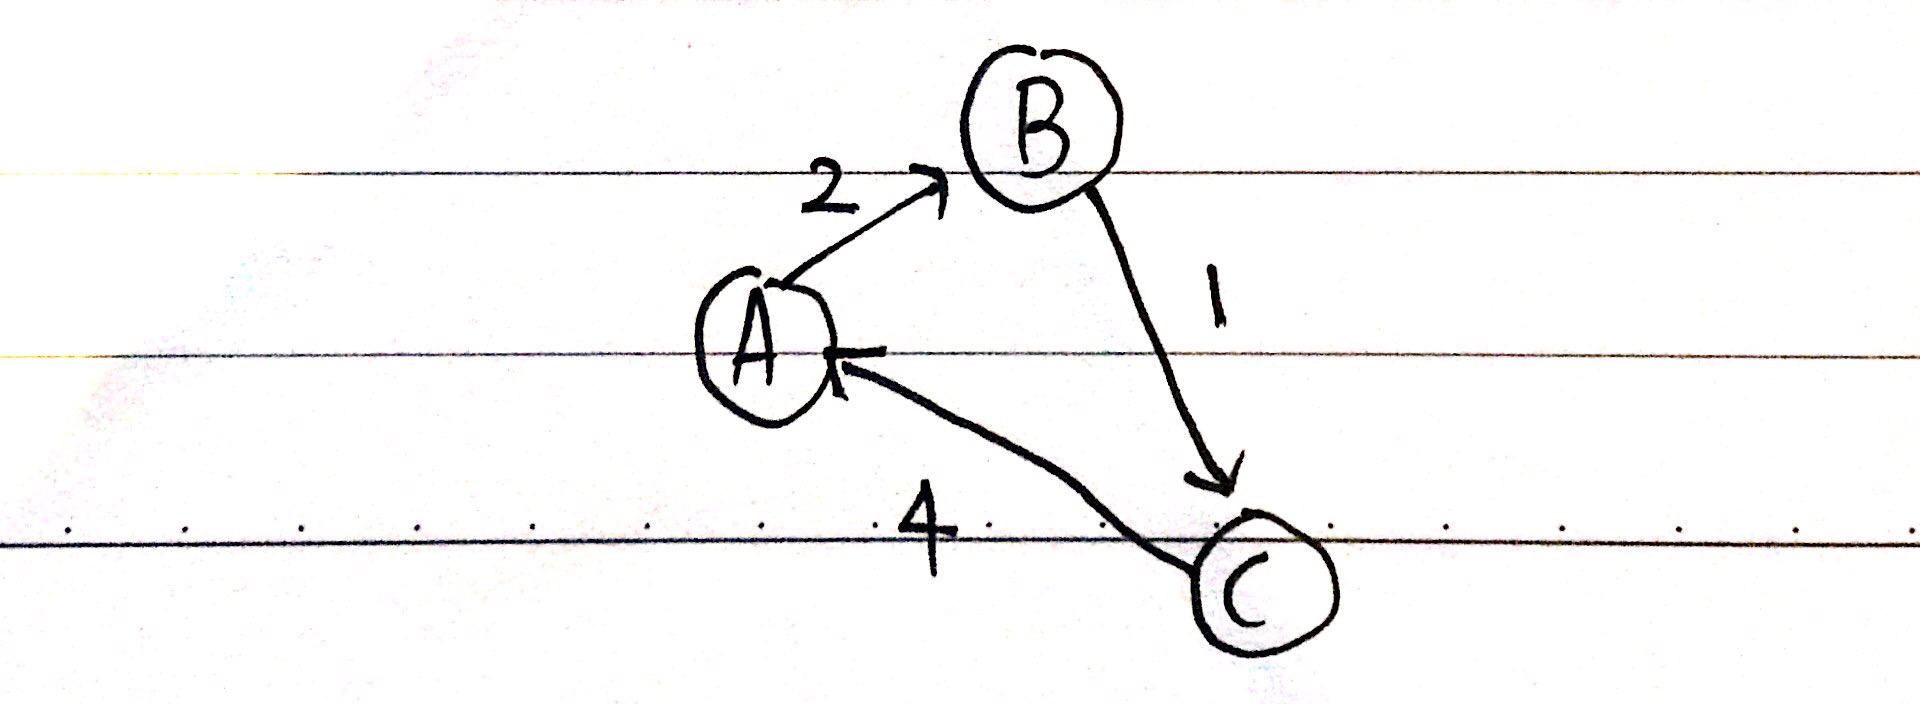 B
2
1
A
4
C